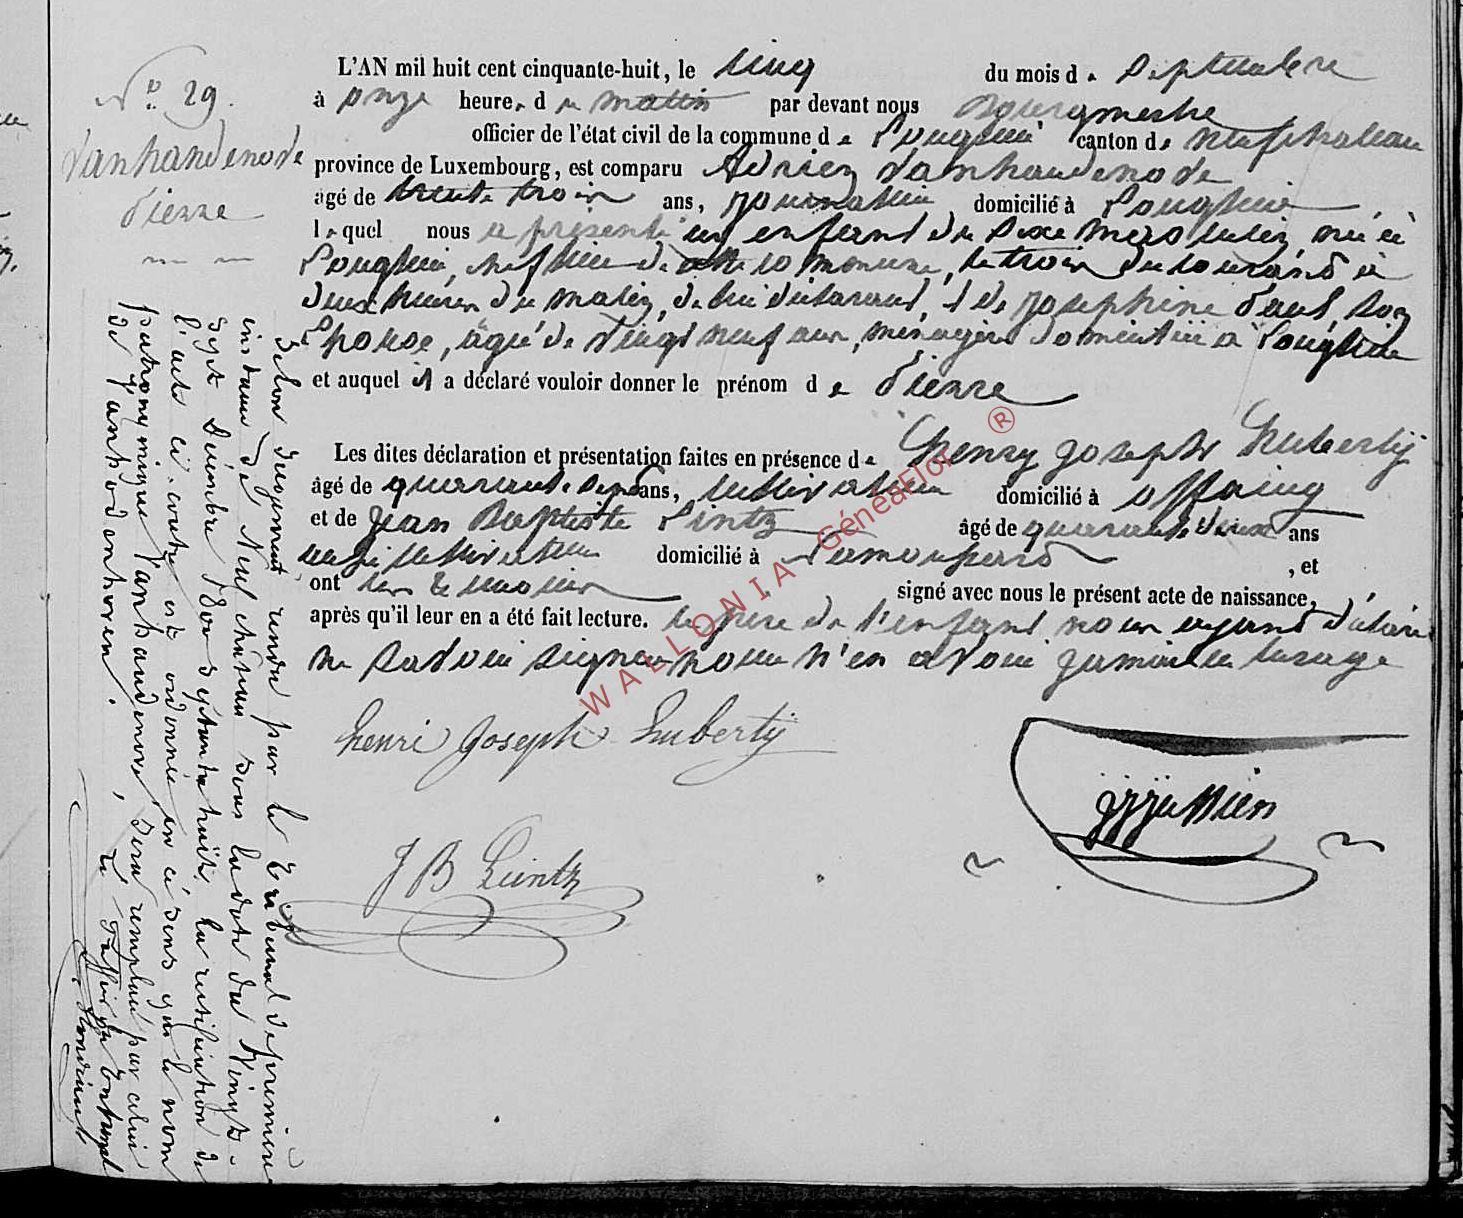 N° 29.
Vanhandenove
Pierre
L'AN mil huit cent cinquante-huit, le cinq du mois de Septembre
à onze heures du matin par devant nous Bourgmestre
officier de l'état civil de la commune de Longlier canton de neufchateau
province de Luxembourg, est comparu Adrien Vanhandenove
agé de trente trois ans, journalier domicilié à Longlier
lequel nous a présenté un enfant du Sexe masculin, né à
Longlier, chef lieu de cette commune, le trois du courant à
deux heures du matin, de lui déclarant, & de Josephine Paul, son
Epouse, âgé de vingt neuf ans, menagère domiciliée à Longlier
et auquel il a déclaré vouloir donner le prénom de Pierre
Les dites déclaration et présentation faites en présence de Henry Joseph Huberty
âgé de quarante sept ans, cultivateur domicilié à offaing
et de Jean Baptiste Lintz âgé de quarante deux ans
cultivateur domicilié à Namoussart , et
ont les temoins signé avec nous le présent acte de naissance,
après qu'il leur en a été fait lecture. le père de l'enfant nous ayant déclaré
ne savoir signer pour n'en avoir jamais eu l'usage
Henri Joseph Huberty
J B Lintz
Selon jugement rendu par le Tribunal de première
instance de Neufchâteau sous la date du Vingt-
sept Décembre 1800 septante huit, la rectification de
l'acte ci-contre est ordonnée en ce sens que le nom
patronymique Vanhandenove, sera remplacé par celui
de Vanhoidenhoven.
Le Greffier du Tribunal
WALLONIA GénéaFlor ®